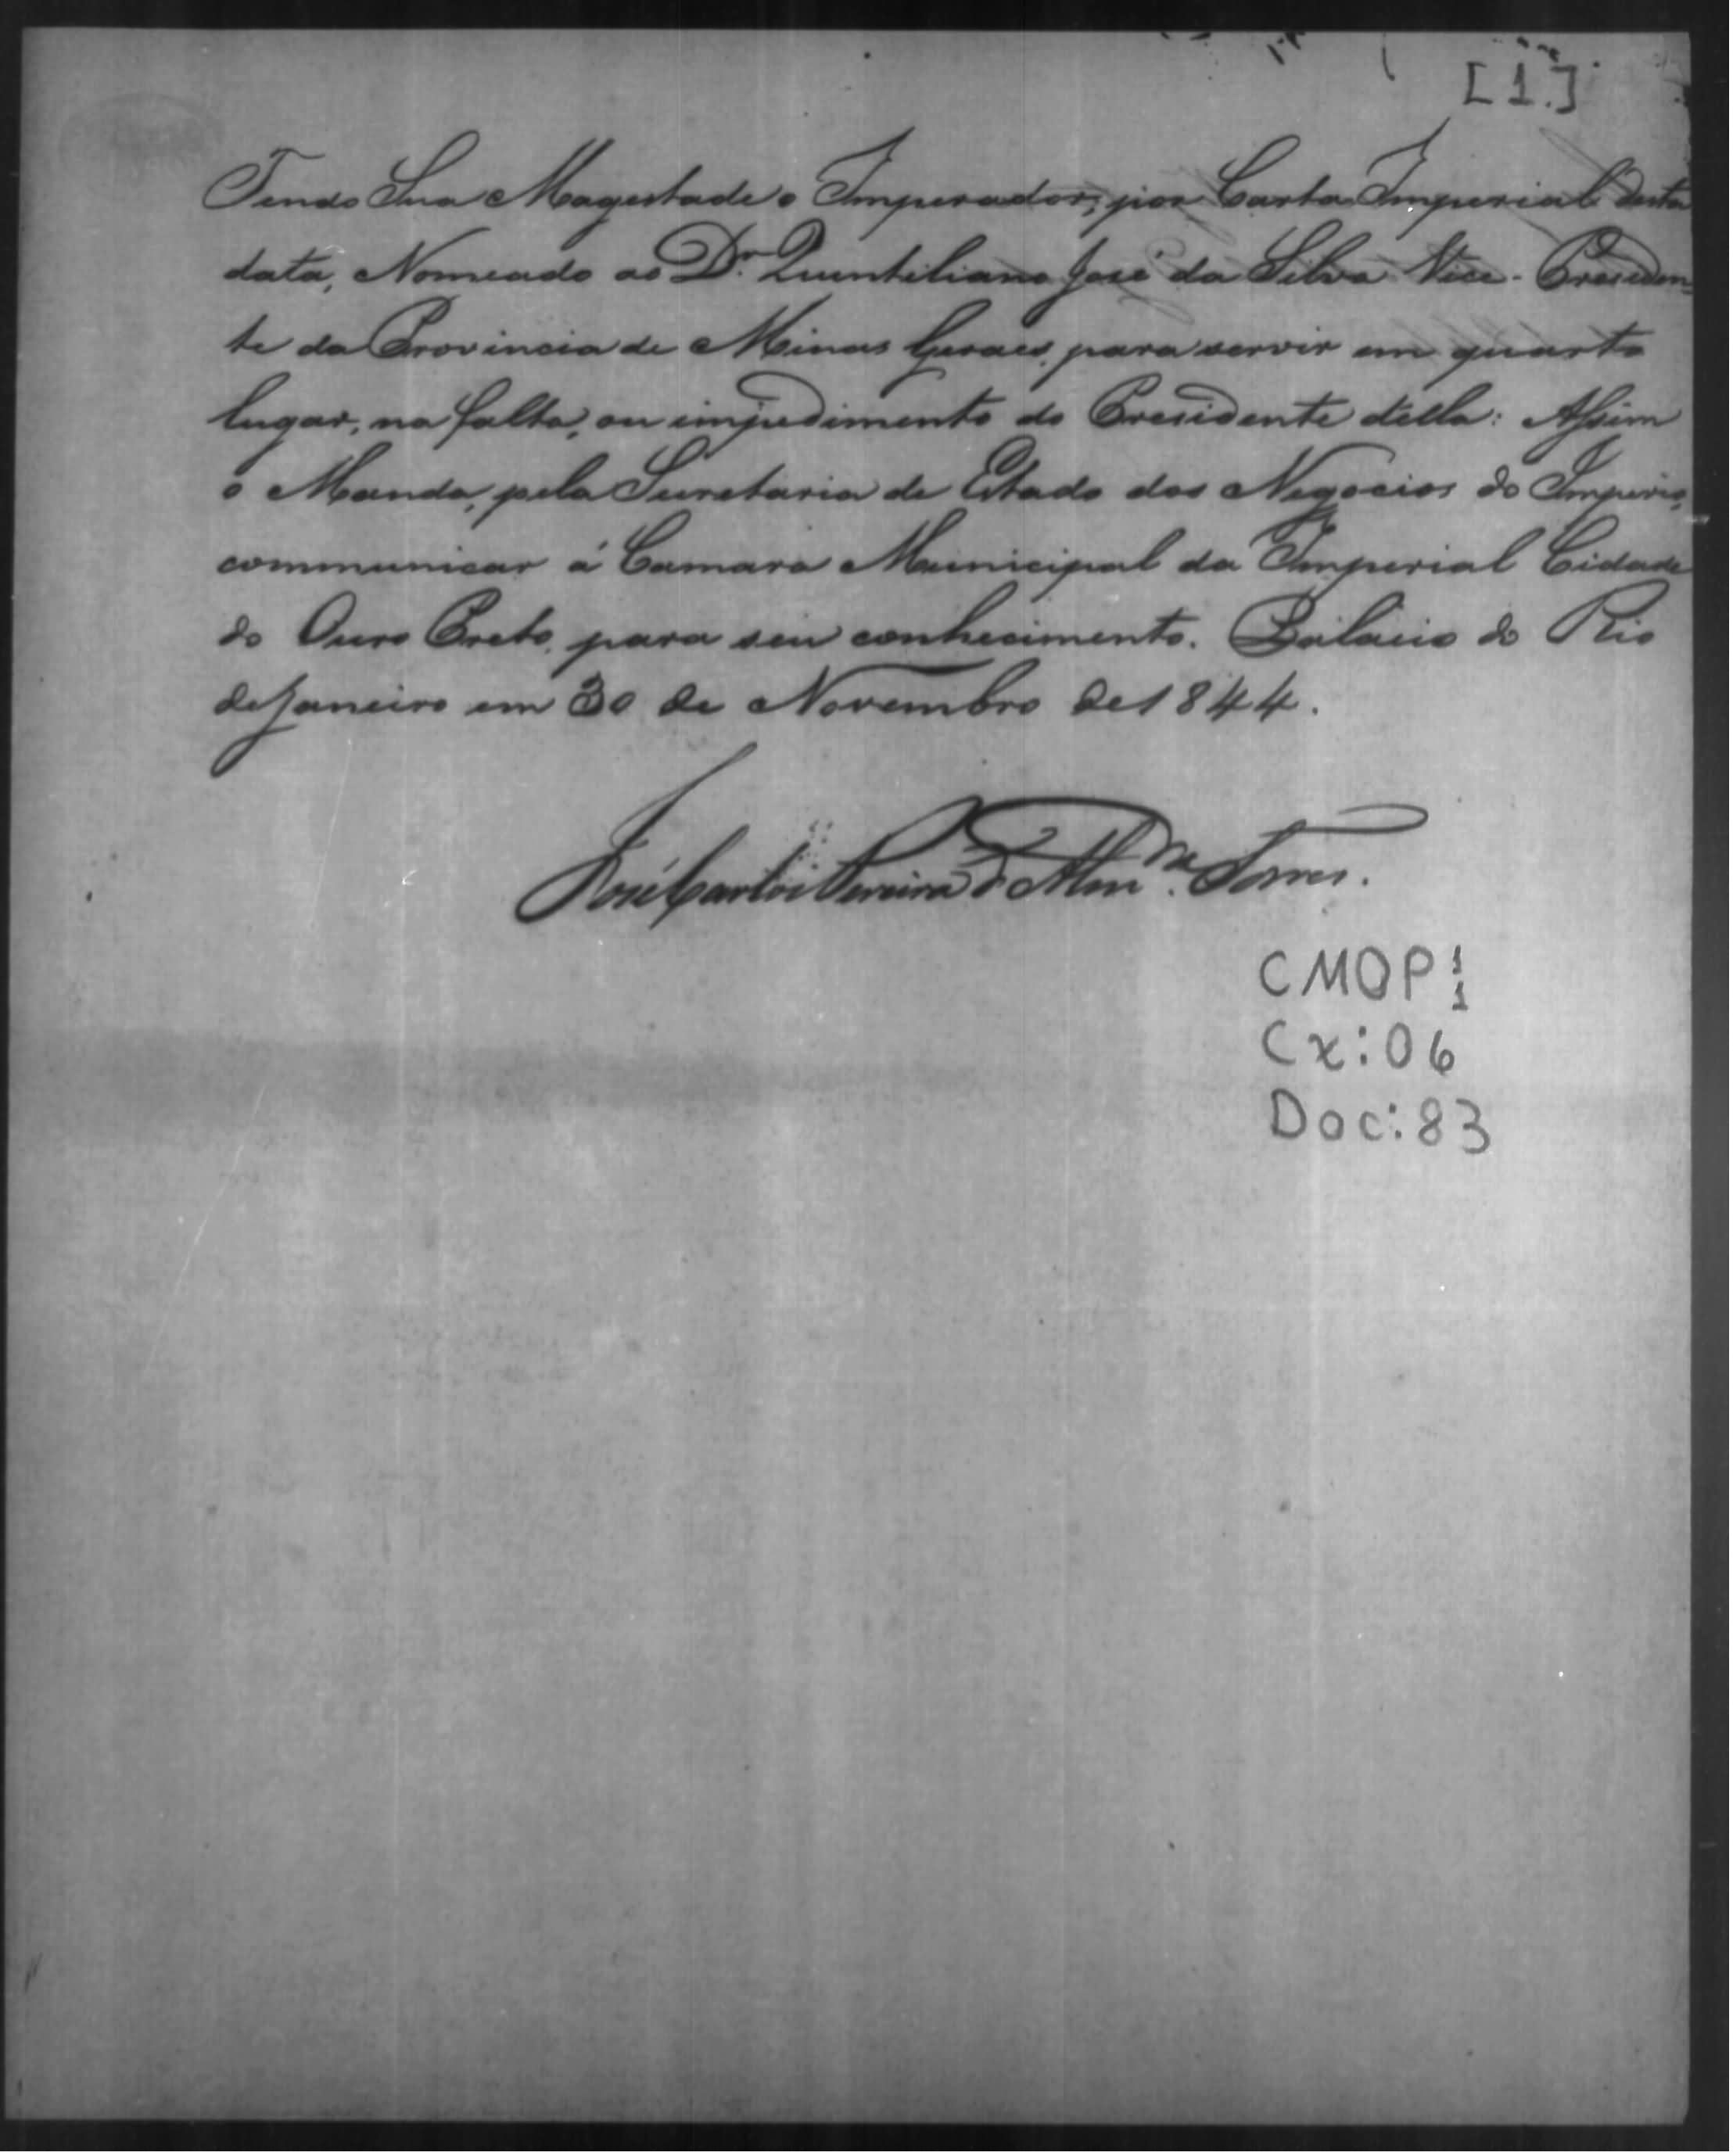 [1.]
Tendo Sua Magestade o Imperador, por Carta Imperial desta
data, Nomeado ao Dr. Quintiliano José da Silva Vice-Presiden-
te da Provincia de Minas Geraes, para servir em quarto
lugar, na falta, ou impedimento do Presidente della: Assim
o Manda, pela Secretaria de Estado dos Negocios do Imperio,
communicar á Camara Municipal da Imperial Cidade
do Ouro Preto, para seu conhecimento. Palacio do Rio
de Janeiro em 30 de Novembro de 1844.
José Carlos Pereira d'Almda. Torres.
CMOP:
1
1
Cx: 06
Doc: 83